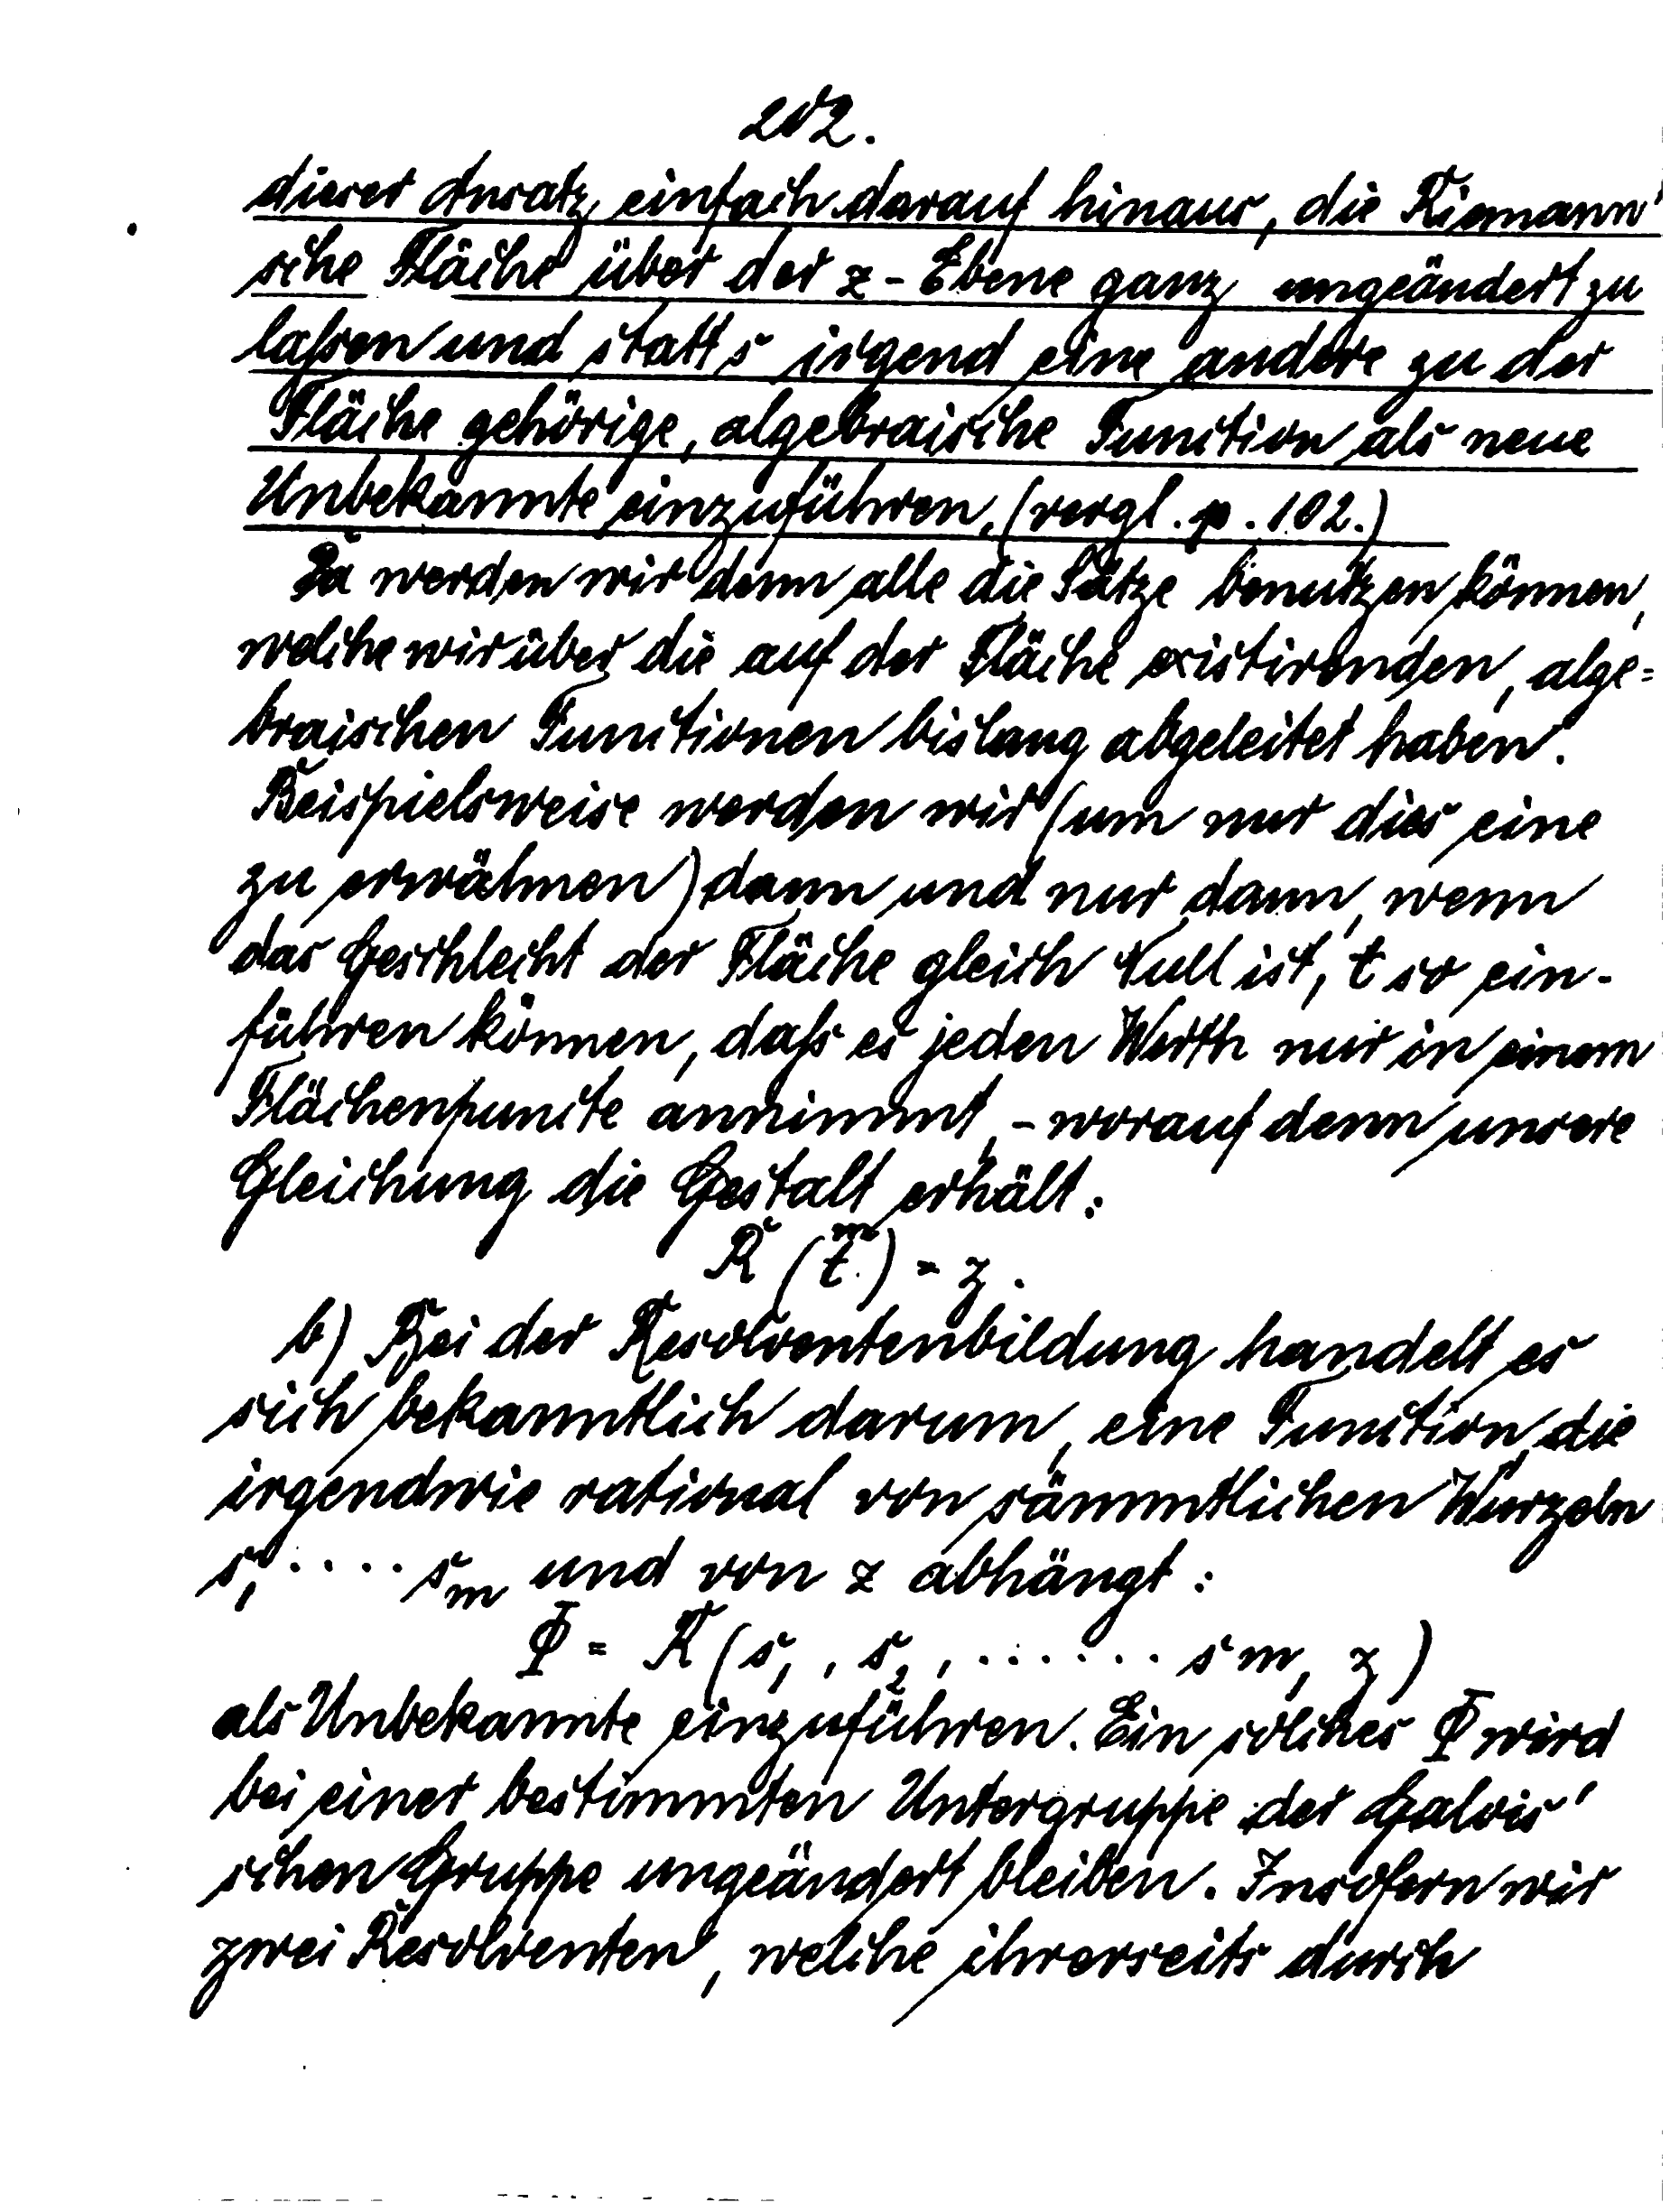 202.
dieser Ansatz einfach darauf hinaus, die Riemann'
sche Fläche über der z-Ebene ganz ungeändert zu
laſsen und statt s irgend eine andere zu der
Fläche gehörige, algebraische Function als neue
Unbekannte einzuführen. (vergl. p. 102.)
Da werden wir denn alle die Sätze benutzen können,
welche wir über die auf der Fläche existirenden, alge=
braischen Functionen bislang abgeleitet haben.
Beispielsweise werden wir (um nur dies eine
zu erwähnen) dann und nur dann, wenn
das Geschlecht der Fläche gleich Null ist, t so ein-
führen können, daſs es jeden Werth nur in einem
Flächenpuncte annimmt, - worauf denn unsere
Gleichung die Gestalt erhält:
R (t^m) = z.
b) Bei der Resolventenbildung handelt es
sich bekanntlich darum, eine Function, die
irgendwie rational von sämmtlichen Wurzeln
s₁ .... sₘ und von z abhängt:
Φ = R (s₁, s₂, ...... sm, z)
als Unbekannte einzuführen. Ein solches Φ wird
bei einer bestimmten Untergruppe der Galois'
schen Gruppe ungeändert bleiben. Insofern wir
zwei Resolventen, welche ihrerseits durch